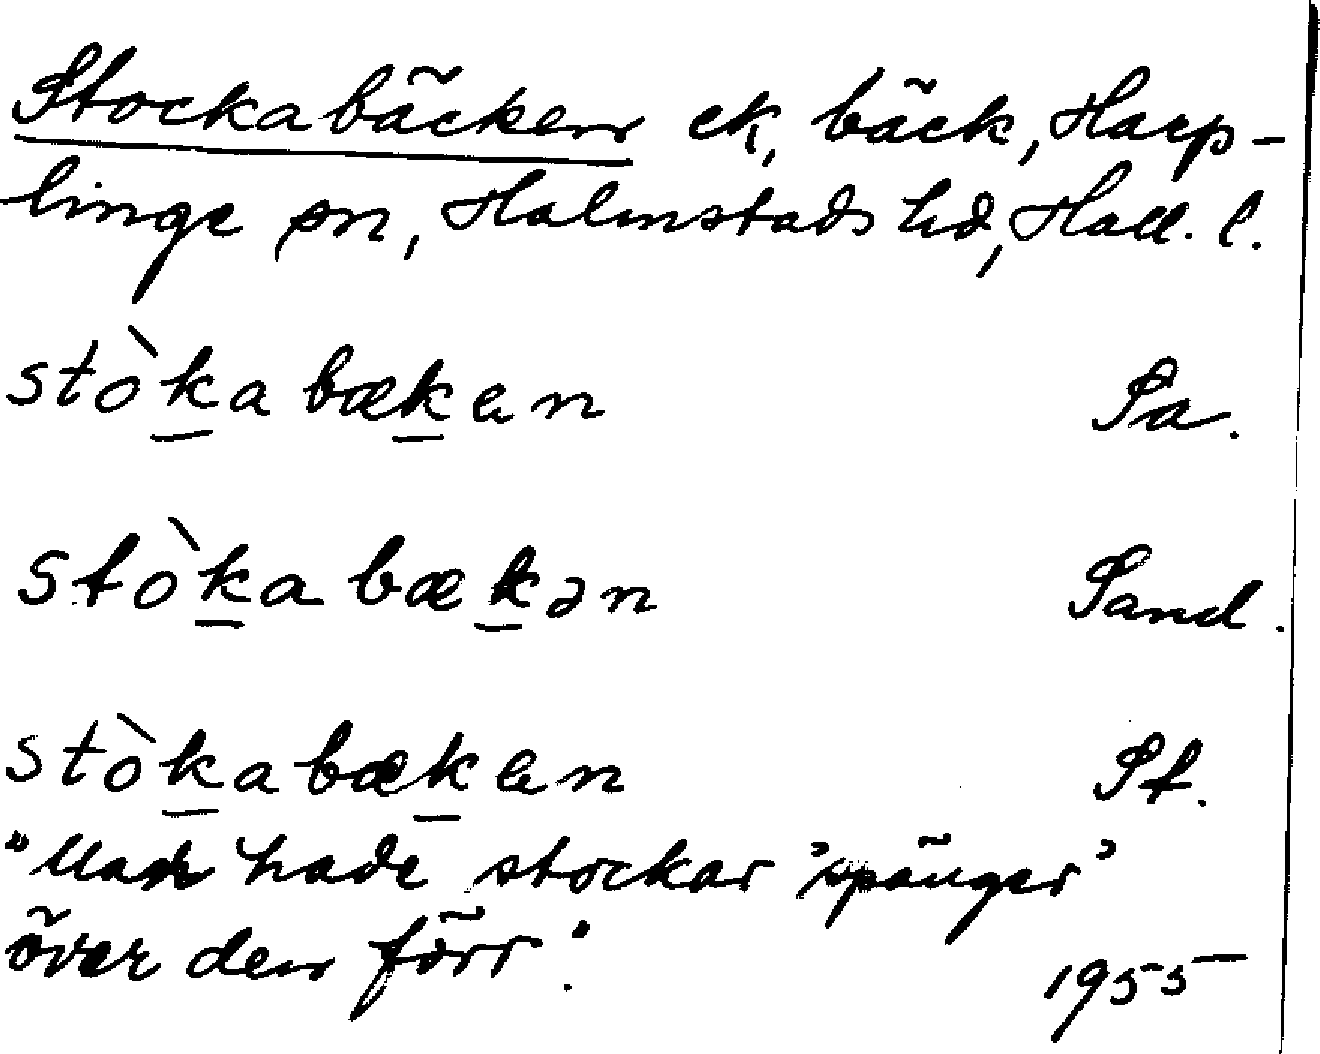 Stockabäcken ek, bäck, Harp-
linge sn, Halmstads hd, Hall. l.
stòkabækən Sa.
stòkabækən Sand.
stòkabækən St.
"Man hade stockar 'spänger'
över den förr".
1955